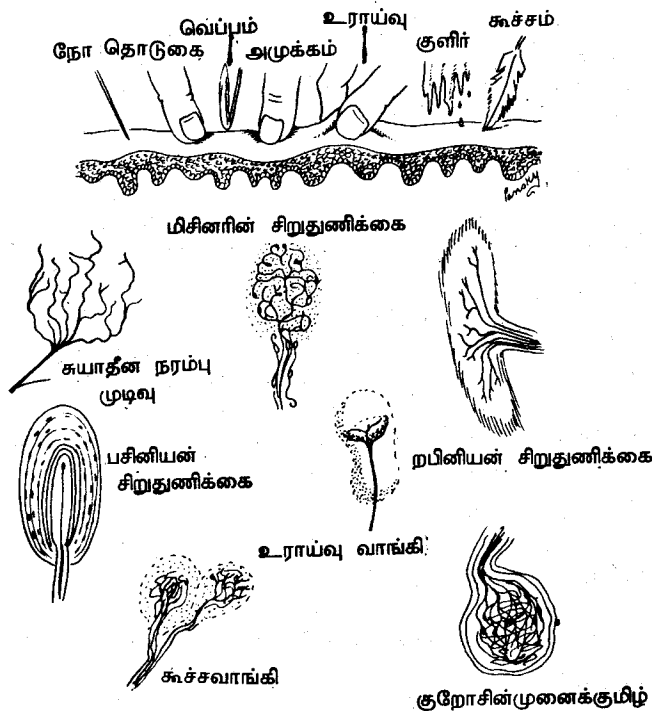 நோ தொடுகை வெப்பம் அமுக்கம் உராய்வு குளிர் கூச்சம்
மிசினரின் சிறுதுணிக்கை
சுயாதீன நரம்பு
முடிவு
பசினியன்
சிறுதுணிக்கை
றபினியன் சிறுதுணிக்கை
உராய்வு வாங்கி
கூச்சவாங்கி
குறோசின்முனைக்குமிழ்